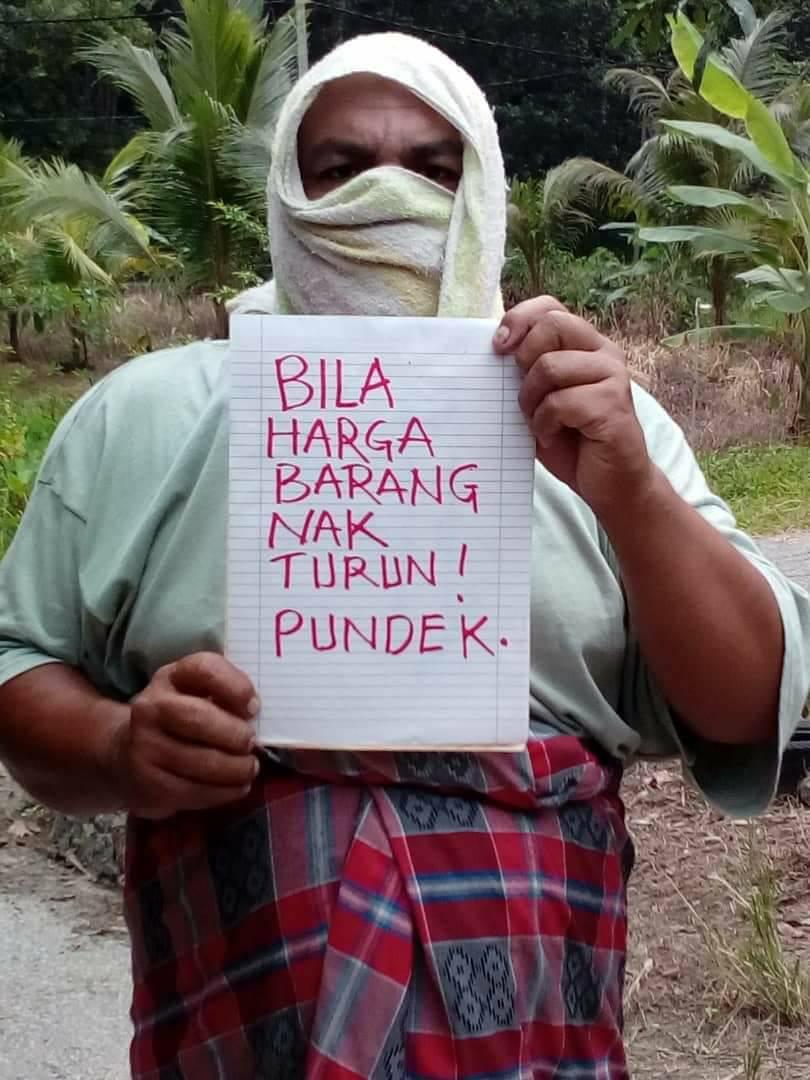 BILA
HARGA
BARANG
NAK
TURUN!
PUNDEK.